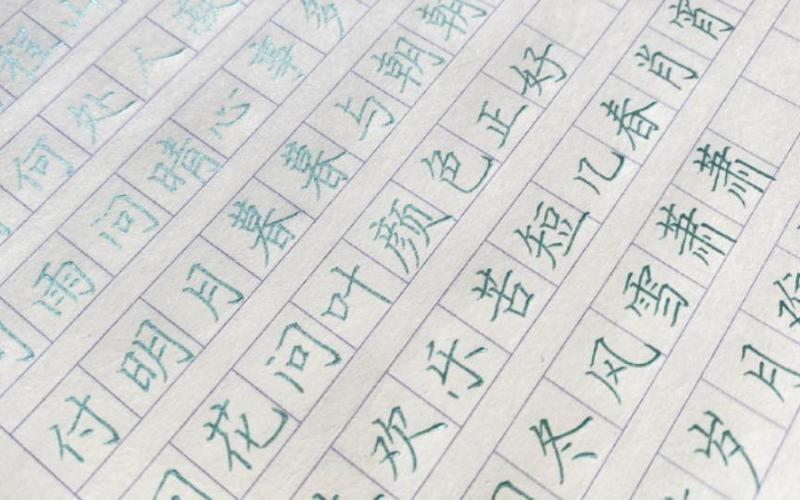 程山
何处人
雨问晴心事多
付明月暮暮与朝朝
花问叶颜色正好
欢乐苦短几春肖宵
冬风雪萧萧
岁月